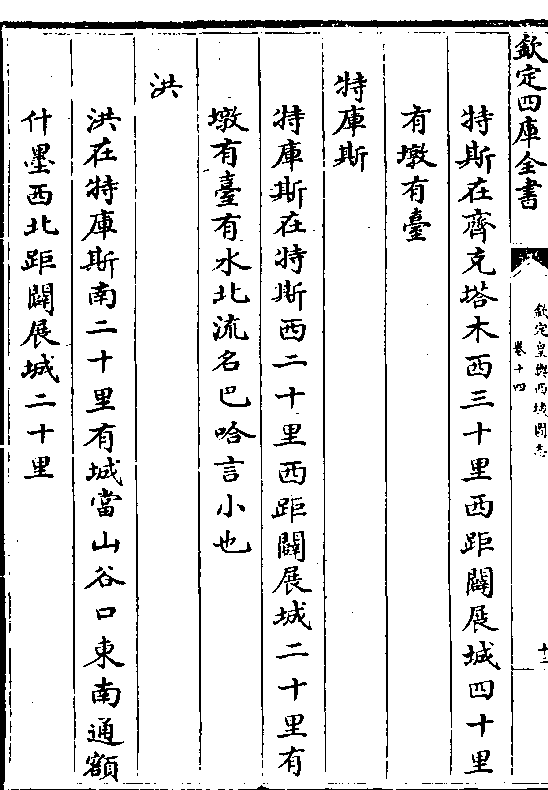 欽定四庫全書
欽定皇輿西域圖志
卷十四
特斯在齊克塔木西三十里西距闢展城四十里
有墩有臺
特庫斯
特庫斯在特斯西二十里西距闢展城二十里有
墩有臺有水北流名巴哈言小也
洪
洪在特庫斯南二十里有城當山谷口東南通額
什墨西北距闢展城二十里